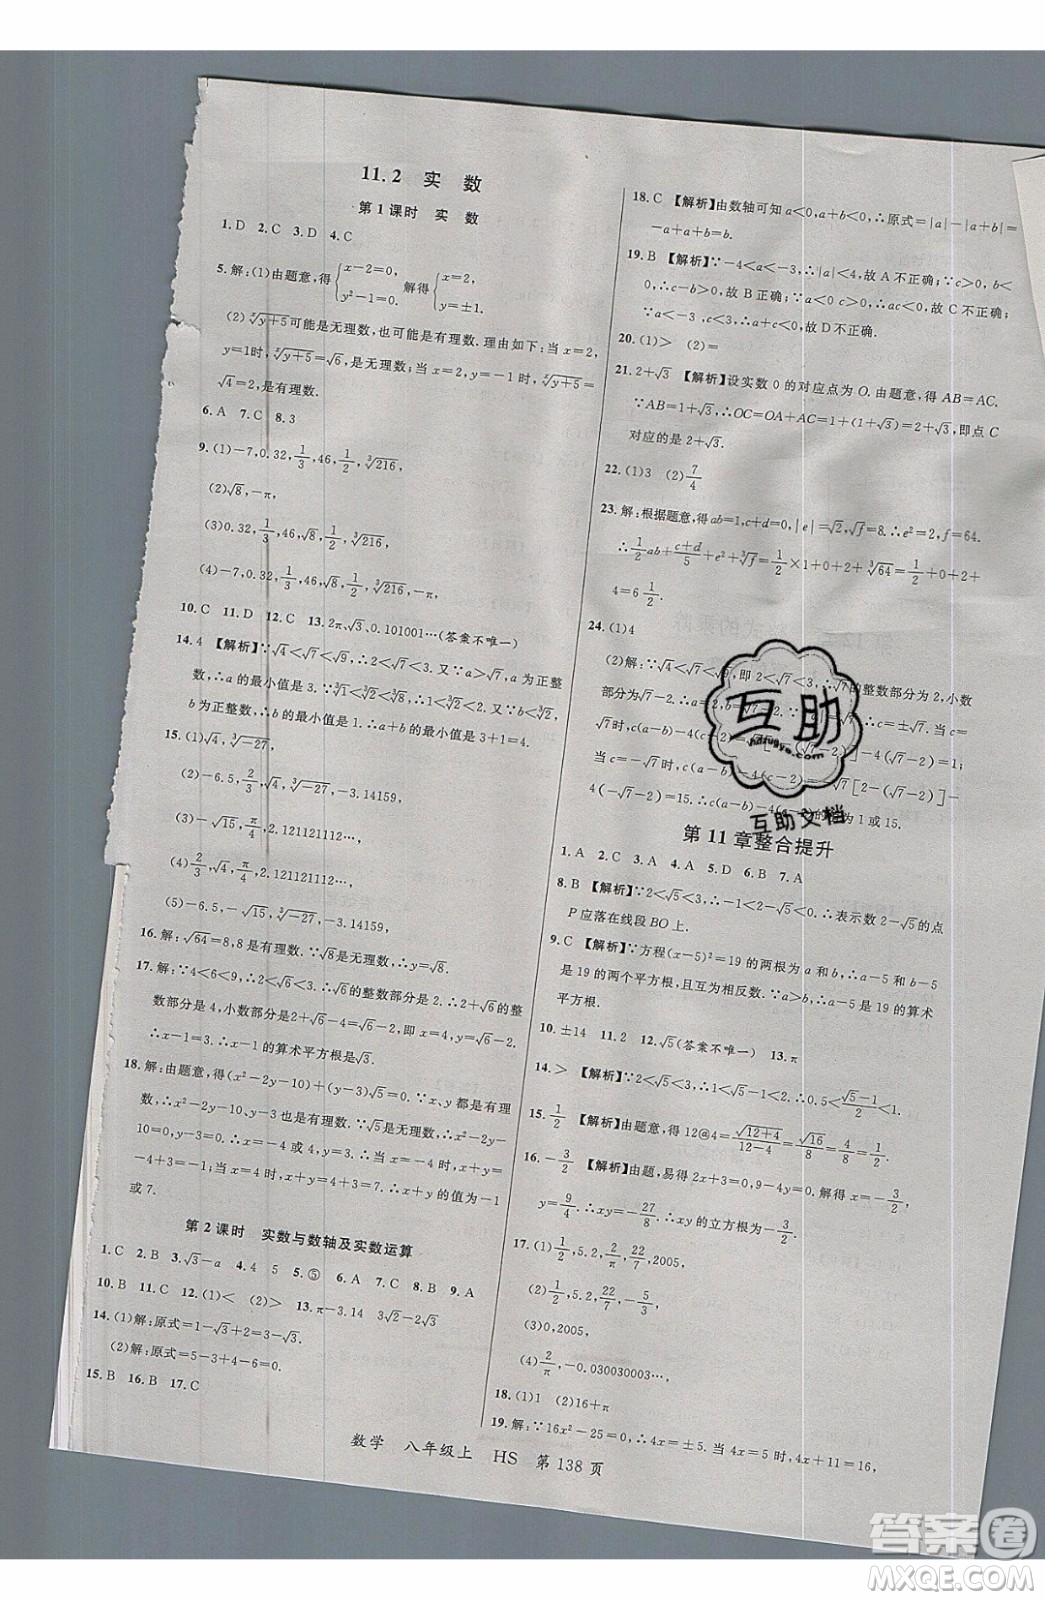 11.2 实 数
第1课时 实 数
1.D 2.C 3.D 4.C
5.解:(1)由题意,得{x-2=0, y²-1=0. 解得{x=2, y=±1.
(2)
可能是无理数,也可能是有理数.理由如下:当x=2,
y=1时,
=√6,是无理数.当x=2,y=-1时,
√4=2,是有理数.
6.A 7.C 8.3
9.(1)-7,0.32,1/3,46,1/2,∛216,
(2)√8,-π,
(3)0.32,1/3,46,√8,1/2,∛216,
(4)-7,0.32,1/3,46,√8,1/2,∛216,-π.
10.C 11.D 12.C 13.2π,√3,0.101001…(答案不唯一)
14.4 【解析】∵√4<√7<√9,∴2<√7<3.又∵a>√7,a为正整
数,∴a的最小值是3.∵∛1<∛2<∛8,∴1<∛2<2.又∵b<∛2,
b为正整数,∴b的最小值是1.∴a+b的最小值是3+1=4.
15.(1)√4,∛-27,
(2)-6.5,2/3,√4,∛-27,-3.14159,
(3)-√15,2.121121112…,
(4)2/3,√4,2.121121112…,
(5)-6.5,-√15,∛-27,-3.14159.
16.解:√64=8,8是有理数.∵√8是无理数,∴y=√8.
17.解:∵4<6<9,∴2<√6<3.∴√6的整数部分是2.∴2+√6的整
数部分是4,小数部分是2+√6-4=√6-2,即x=4,y=√6-2.
∴x-1=3.∴x-1的算术平方根是√3.
18.解:由题意,得(x²-2y-10)+(y-3)√5=0.∵x、y都是有理
数,∴x²-2y-10、y-3也是有理数.∵√5是无理数,∴x²-2y-
10=0,y-3=0.∴x=±4,y=3.当x=-4,y=3时,x+y=
-4+3=-1;当x=4,y=3时,x+y=4+3=7.∴x+y的值为-1
或7.
第2课时 实数与数轴及实数运算
1.C 2.B 3.√3-a 4.4 5 5.⑤ 6.A 7.C 8.B 9.A
10.B 11.C 12.(1)< (2)> 13.π-3.14 3√2-2√3
14.(1)解:原式=1-√3+2=3-√3.
(2)解:原式=5-3+4-6=0.
15.B 16.B 17.C
18.C 【解析】由数轴可知a<0,a+b<0,∴原式=|a|-|a+b|=
-a+a+b=b.
19.B 【解析】∵-4<a<-3,∴|a|<4,故A不正确;∵c>0,b
<0,∴c-b>0,故B正确;∵a<0,c>0,∴ac<0,故C不正确;
∵a<-3,c<3,∴a+c<0,故D不正确.
20.(1)> (2)=
21.2+√3 【解析】设实数0的对应点为O.由题意,得AB=AC.
∵AB=1+√3,∴OC=OA+AC=1+(1+√3)=2+√3,即点C
对应的是2+√3.
22.(1)3 (2)7/4
23.解:根据题意,得ab=1,c+d=0,|e|=√2,√f=8.∴e²=2,f=64.
∴1/2ab+(c+d)/5+e²+∛f=1/2×1+0+2+∛64=1/2+0+2+
4=6 1/2.
24.(1)4
(2)解:∵√4<√7<√9,即2<√7<3,∴√7的整数部分为2,小数
部分为√7-2,∴a=2,b=√7-2.
∴c=±√7.当c=
√7时,c(a-b)-4(c-b-2)=
-4(√7-√7+2-2)=
当c=-√7时,c(a-b)-4(c-b-2)=
4(-√7-√7)=15.∴c(a-b)-4(c-b-2)的值为1或15.
第11章整合提升
1.A 2.C 3.A 4.A 5.D 6.B 7.A
8.B 【解析】∵2<√5<3,∴-1<2-√5<0.∴表示数2-√5的点
P应落在线段BO上.
9.C 【解析】∵方程(x-5)²=19的两根为a和b,∴a-5和b-5
是19的两个平方根,且互为相反数.∵a>b,∴a-5是19的算术
平方根.
10.±14 11.2 12.√5(答案不唯一) 13.π
14.> 【解析】∵2<√5<3,∴1<√5-1<2.∴0.5<(√5-1)/2<1.
15.1/2 【解析】由题意,得12@4=√(12+4)/(12-4)=√16/8=4/8=1/2.
16.-3/2 【解析】由题,易得2x+3=0,9-4y=0.解得x=-3/2,
y=9/4.∴xy=-27/8.∴xy的立方根为-3/2.
17.(1)1/2,5.2,2/π,22/7,2005,
(2)1/2,5.2,22/7,-5/3,
(3)0,2005,
(4)2/π,-0.030003003….
18.(1)1 (2)16+π
19.解:∵16x²-25=0,∴4x=±5.当4x=5时,4x+11=16,
数学 八年级上 HS 第138页
互助
hdzuoye.com
互助文档
答案卷
MXQE.COM